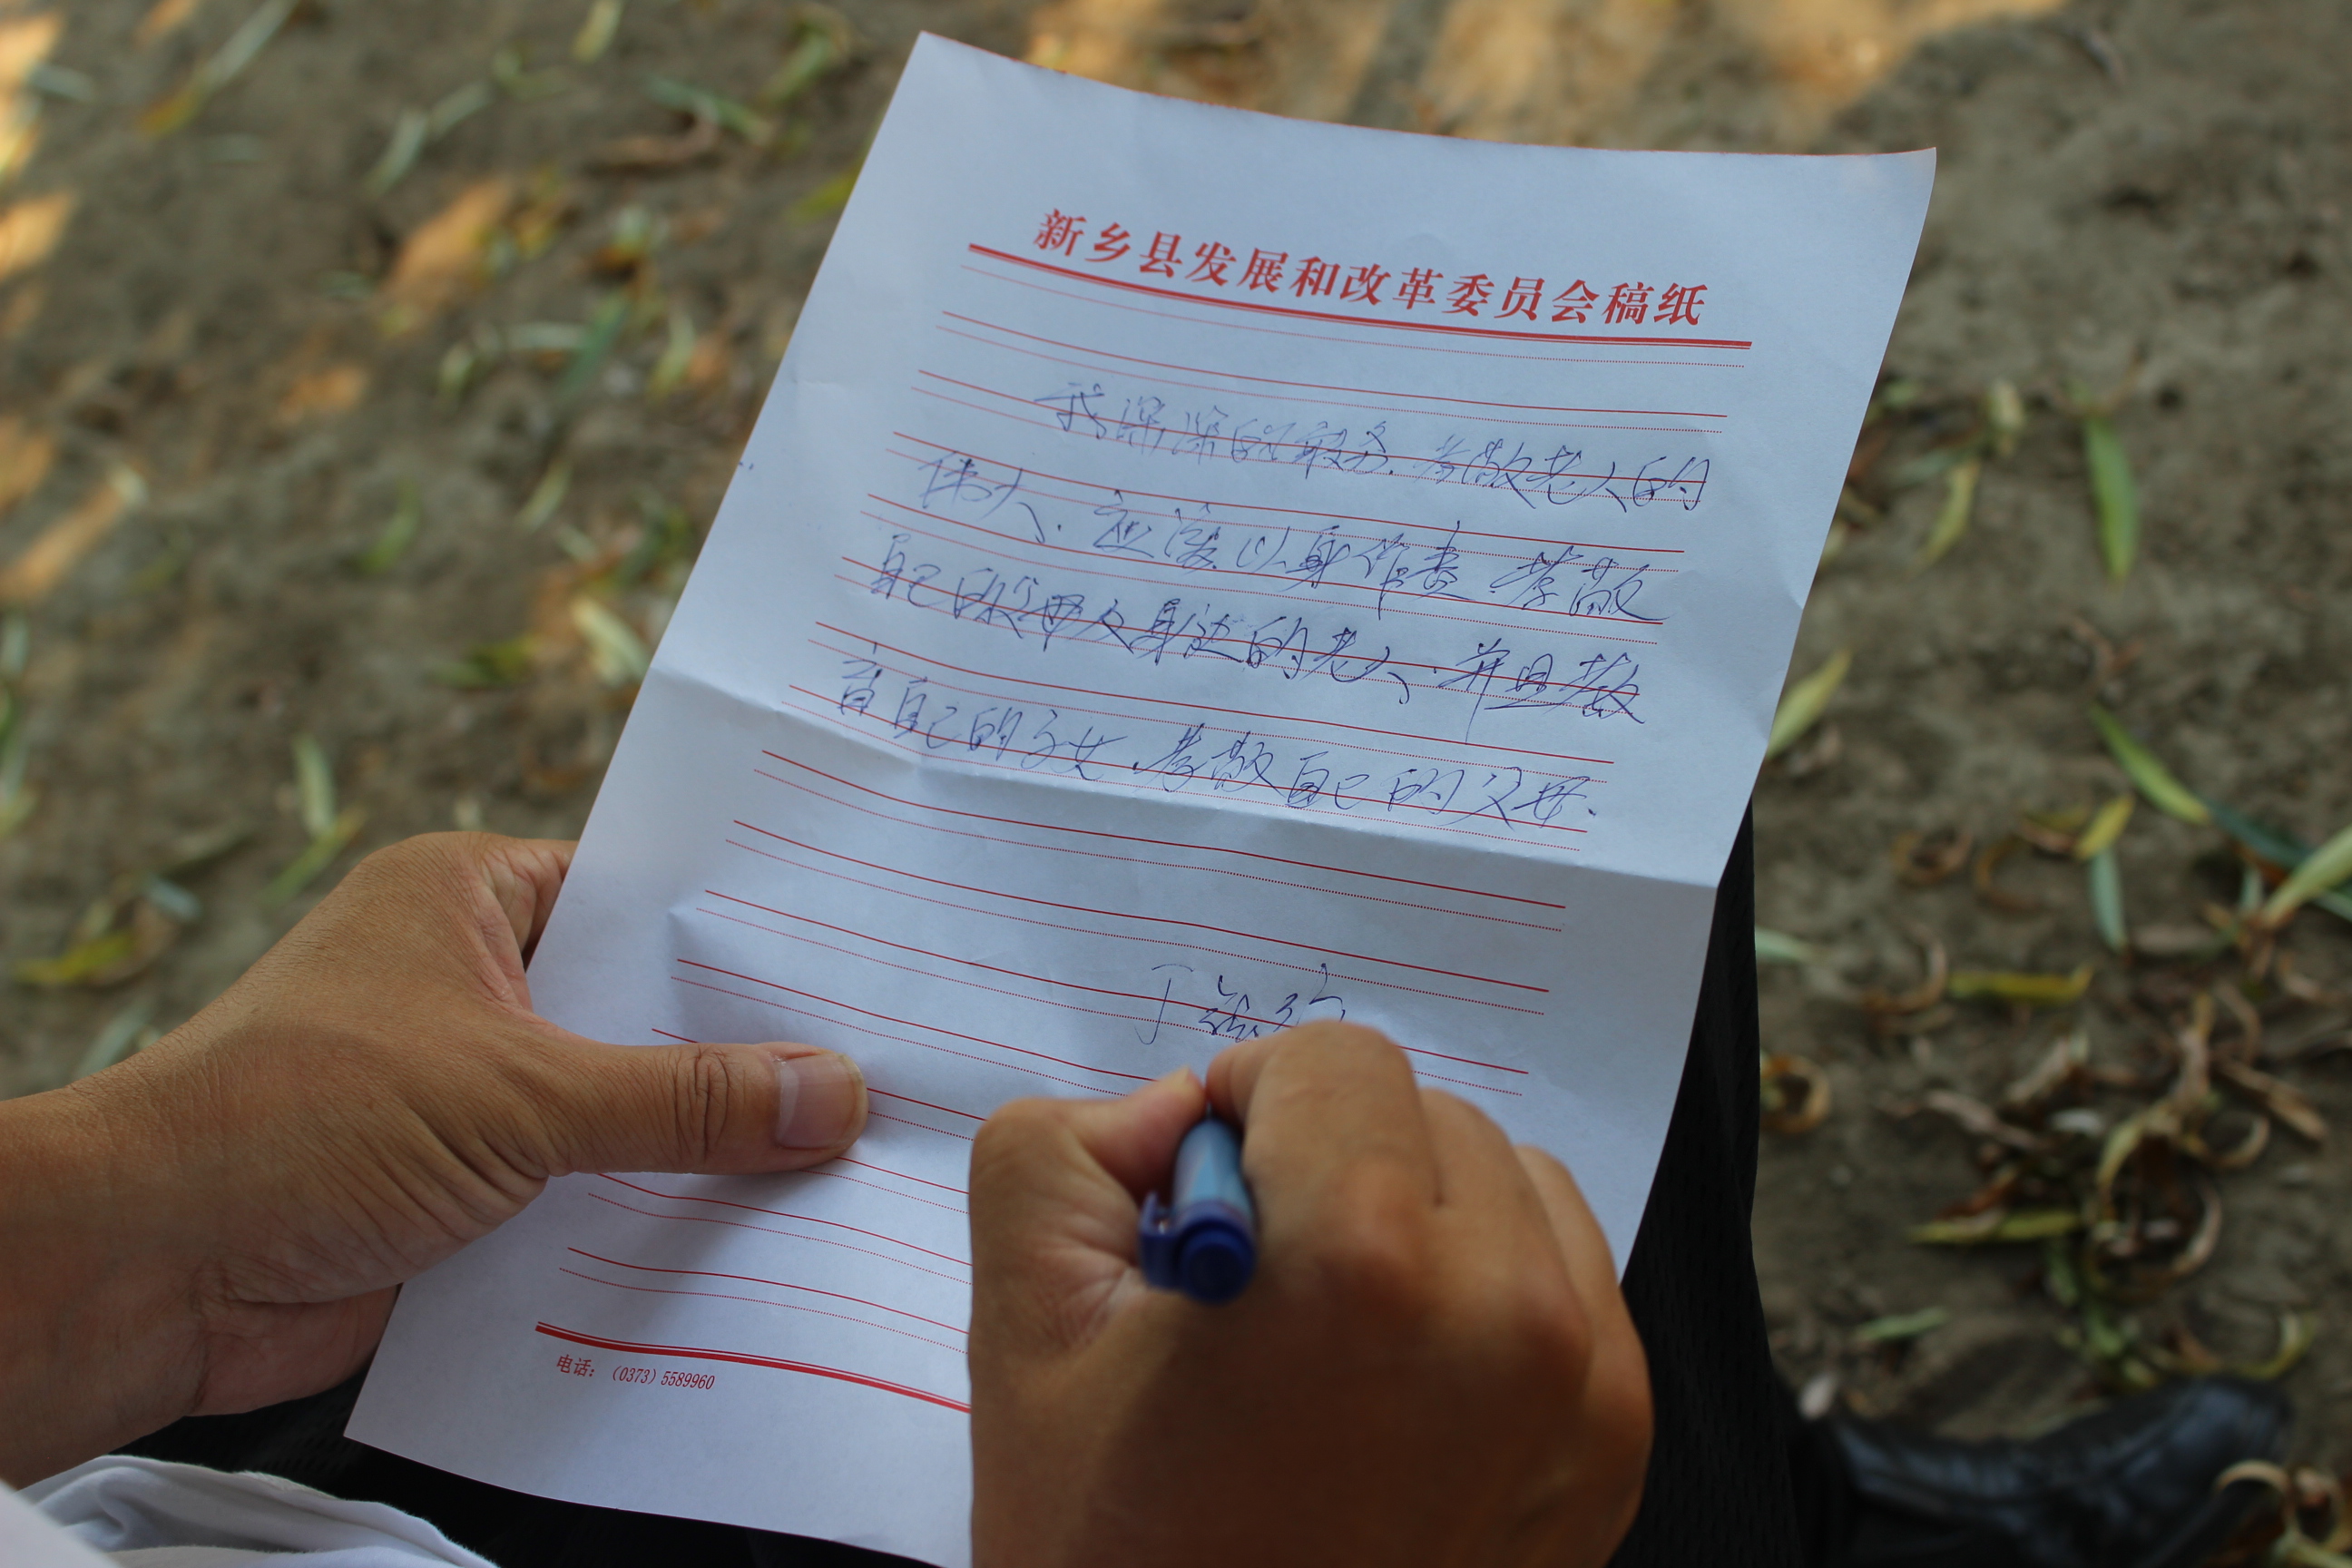 新乡县发展和改革委员会稿纸
我深深的 孝敬老人的
伟大、应该以身作责.孝敬
自己的父母及身边的老人.并且教
育自己的子女.孝敬自己的父母.
丁
电话:(0373)5589960